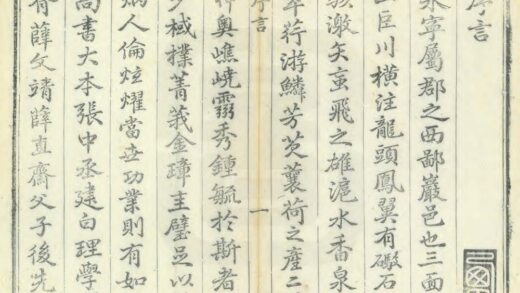 序言
永寧屬郡之西鄙巖邑也三面
巨川橫注龍頭鳳翼有礮石
激矢飛之雄滬水香泉
荇游鱗芳芡蘘荷之產二
序言 一
奧嶕嶢霛秀鍾毓於斯者
棫樸菁莪金璋圭璧足以
炳人倫炫耀當世功業則有如
尚書大本張中丞建白理學
有薛文靖薛直齋父子後先